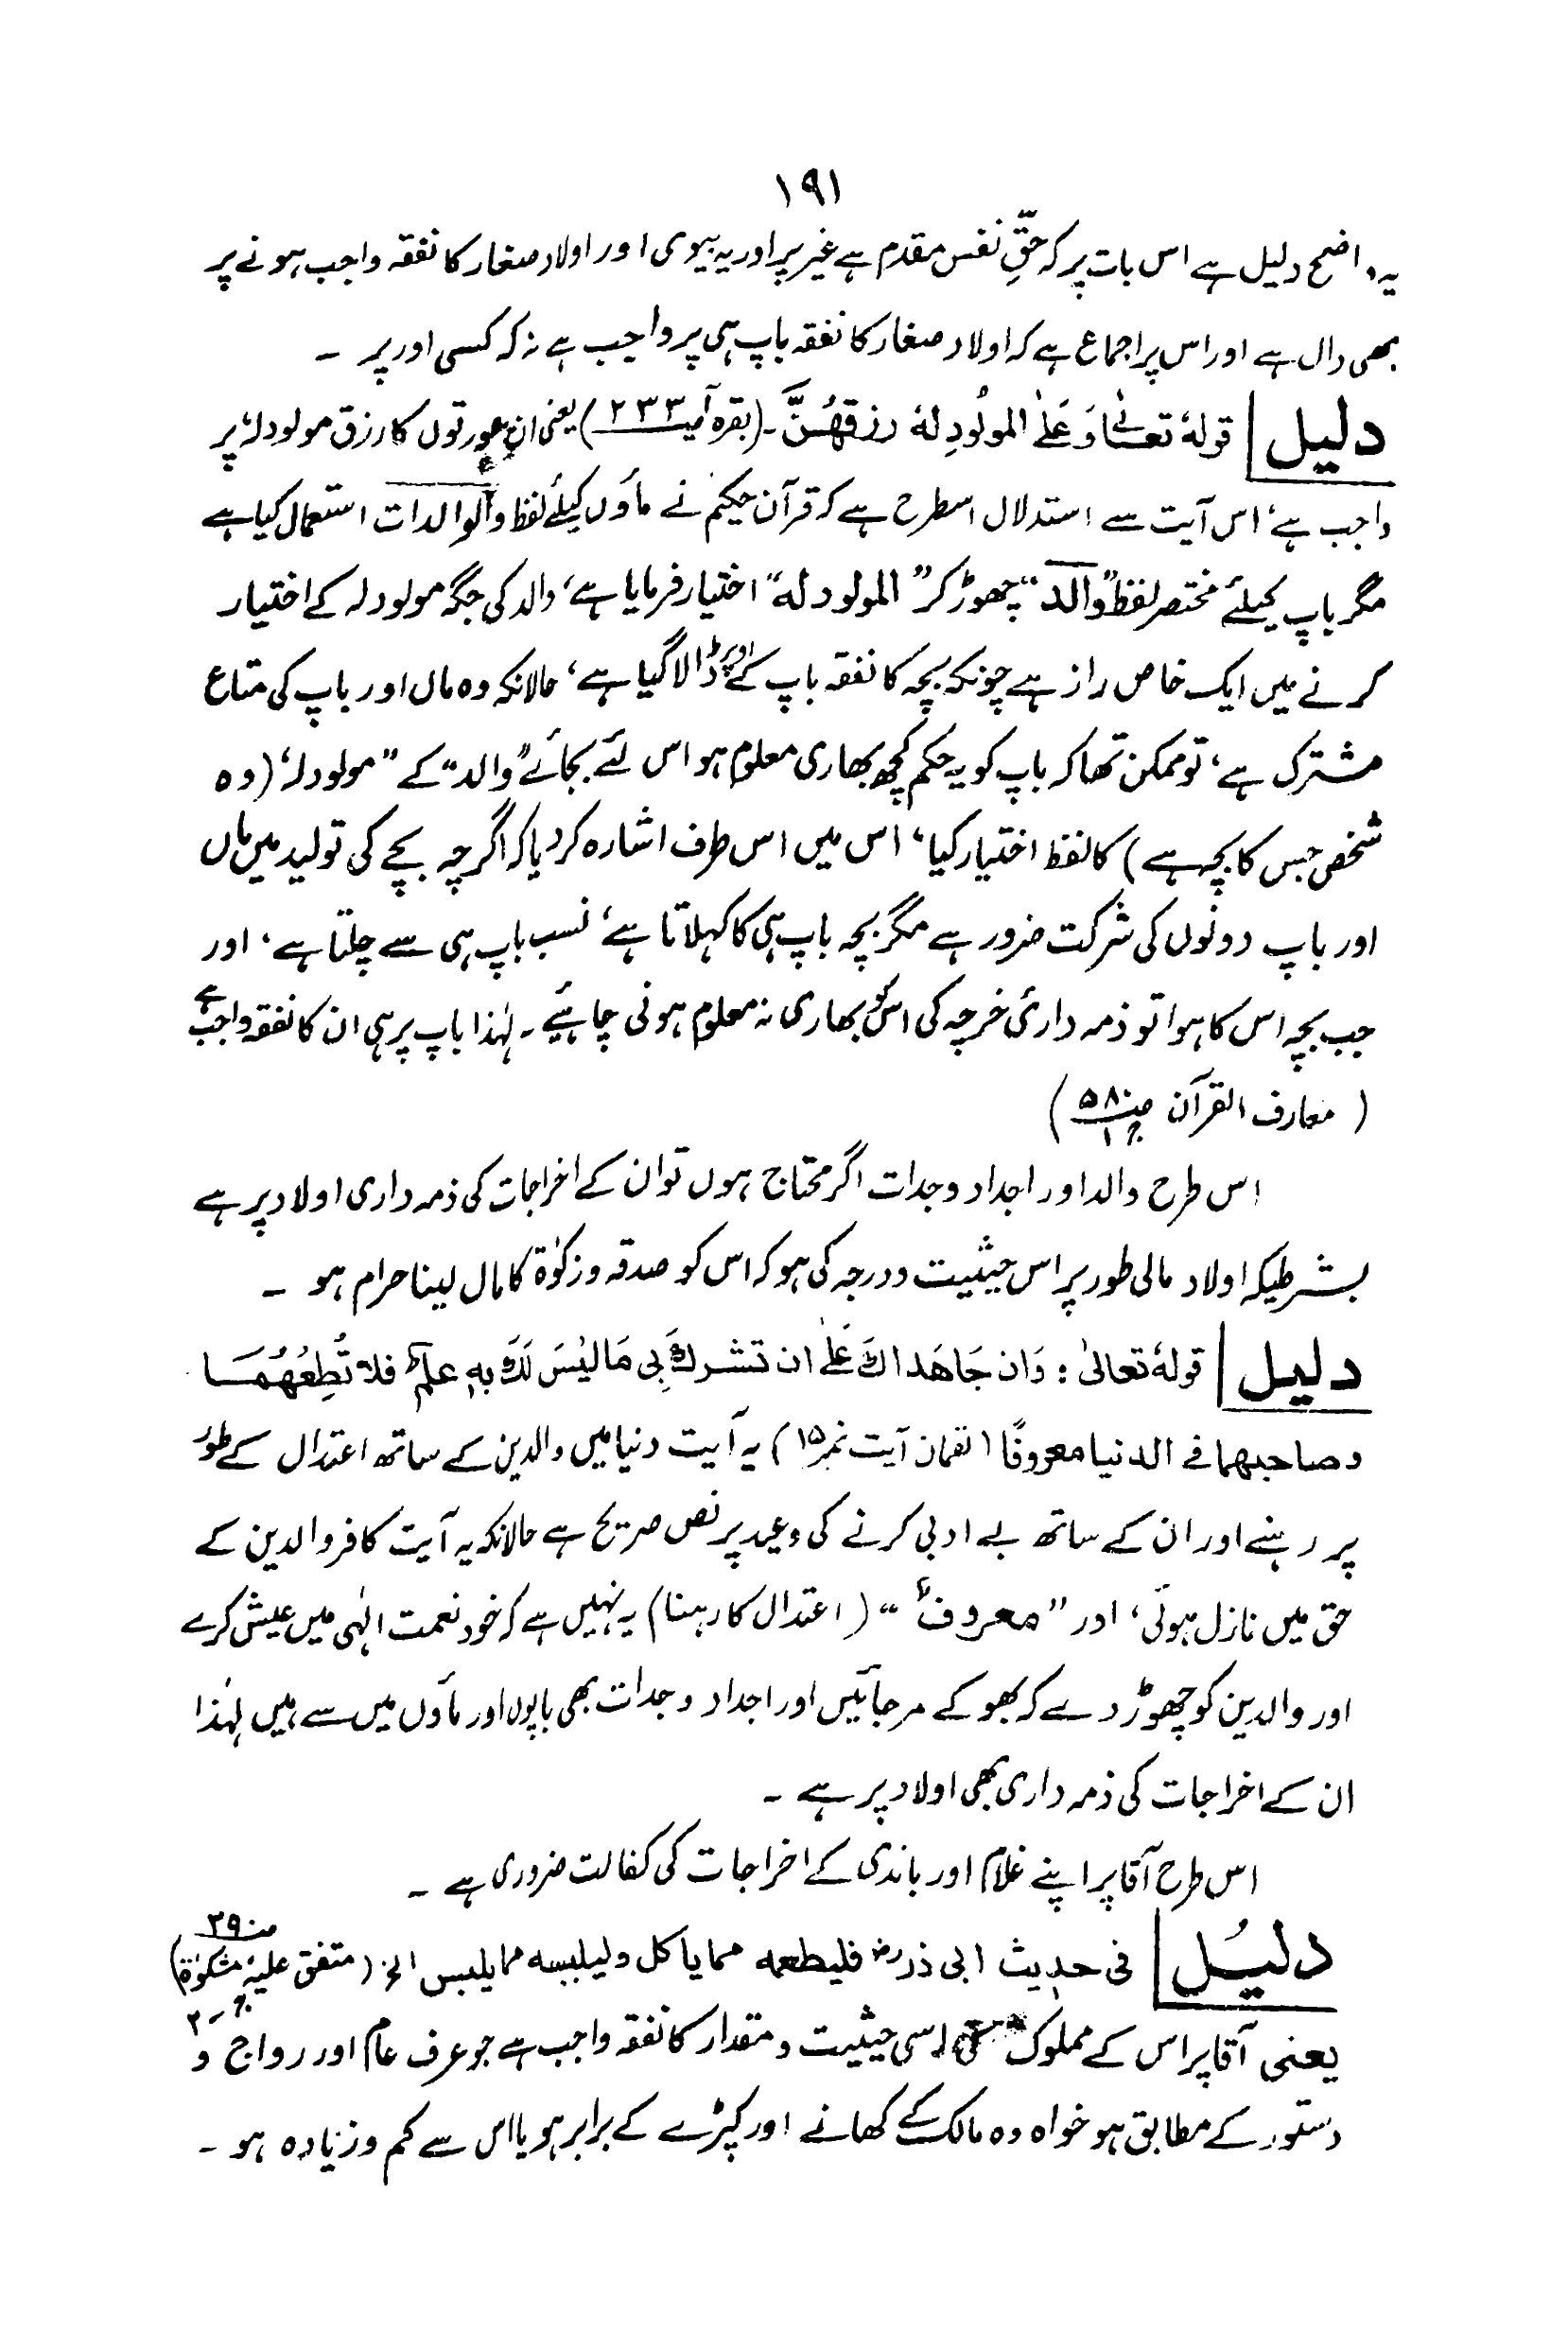 ۱۹۱
یہ واضح دلیل ہے اس بات پر کہ حقِّ نفس مقدم ہے غیر پر اور یہ بیوی اور اولاد صغار کا نفقہ واجب ہونے پر
بھی دال ہے اور اس پر اجماع ہے کہ اولاد صغار کا نفقہ باپ ہی پر واجب ہے نہ کہ کسی اور پر ۔
دلیل قولہٗ تعالیٰ وَعَلیٰ المولُودِ لہٗ رزقھُنَّ ۔ (بقرہ آیت ۲۳۳) یعنی ان عورتوں کا رزق مولود لہٗ پر
واجب ہے، اس آیت سے استدلال اسطرح ہے کہ قرآن حکیم نے ماؤں کیلئے لفظ والوالدات استعمال کیا ہے
مگر باپ کیلئے مختصر لفظ ”والد“ چھوڑ کر ”المولود لہ“ اختیار فرمایا ہے، والد کی جگہ مولود لہ کے اختیار
کرنے میں ایک خاص راز ہے چونکہ بچہ کا نفقہ باپ کے اوپر ڈالا گیا ہے، حالانکہ وہ ماں اور باپ کی متاع
مشترک ہے، تو ممکن تھا کہ باپ کو یہ حکم کچھ بھاری معلوم ہو اس لئے بجائے ”والد“ کے ”مولود لہٗ (وہ
شخص جس کا بچہ ہے) کا لفظ اختیار کیا، اس میں اس طرف اشارہ کر دیا کہ اگرچہ بچے کی تولید میں ماں
اور باپ دونوں کی شرکت ضرور ہے مگر بچہ باپ ہی کا کہلاتا ہے، نسب باپ ہی سے چلتا ہے، اور
جب بچہ اس کا ہوا تو ذمہ داریٔ خرچہ کی اس کو بھاری نہ معلوم ہونی چاہیئے ۔ لہٰذا باپ پر ہی ان کا نفقہ واجب ہے
( معارف القرآن صـ ۵۸۰ ج ۱ )
اس طرح والد اور اجداد وجدات اگر محتاج ہوں تو ان کے اخراجات کی ذمہ داری اولاد پر ہے
بشرطیکہ اولاد مالی طور پر اس حیثیت و درجہ کی ہو کہ اس کو صدقہ و زکوٰۃ کا مال لینا حرام ہو ۔
دلیل قولہٗ تعالیٰ : وَان جَاھَداکَ عَلیٰ ان تشرکَ بِی مَا لیسَ لَکَ بِہٖ علمٌ فلا تُطِعْھُمَا
وصاحبھما فے الدنیا معروفًا (لقمان آیت نمبر ۱۵) یہ آیت دنیا میں والدین کے ساتھ اعتدال کے طور
پر رہنے اور ان کے ساتھ بے ادبی کرنے کی وعید پر نص صریح ہے حالانکہ یہ آیت کافر والدین کے
حق میں نازل ہوئی، اور ”معروف“ (اعتدال کا رہنا) یہ نہیں ہے کہ خود نعمت الٰہی میں عیش کرے
اور والدین کو چھوڑ دے کہ بھوکے مر جائیں اور اجداد و جدات بھی باپوں اور ماؤں میں سے ہیں لہٰذا
ان کے اخراجات کی ذمہ داری بھی اولاد پر ہے ۔
اس طرح آقا پر اپنے غلام اور باندی کے اخراجات کی کفالت ضروری ہے ۔
دلیل فی حدیث ابی ذر رض فلیطعمہ مما یاکل ولیلبسہ مما یلبس الخ (متفق علیہ مشکوٰۃ صـ ۲۹۰ ج ۲)
یعنی آقا پر اس کے مملوک کی اسی حیثیت و مقدار کا نفقہ واجب ہے جو عرف عام اور رواج و
دستور کے مطابق ہو خواہ وہ مالک کے کھانے اور کپڑے کے برابر ہو یا اس سے کم و زیادہ ہو ۔